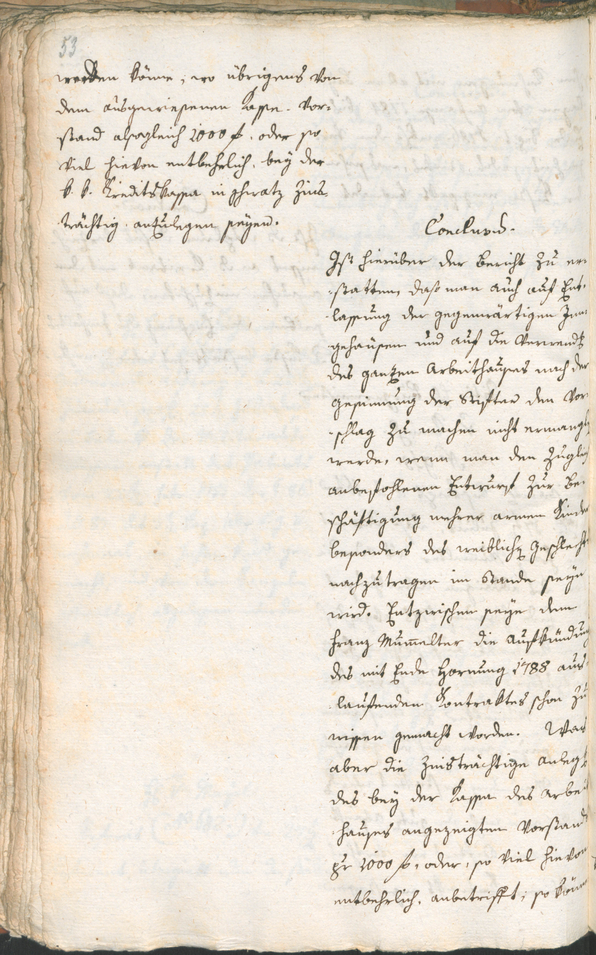 53
werden könne, wo übrigens von
dem ausgewiesenen Kasse-Vor-
stand alsogleich 2000 f. oder so
viel hievon entbehrlich, bey der
k. k. Kreditskassa in Schwatz zins-
trächtig anzulegen seyen.
Conclusum.
Ist hierüber der Bericht zu er
statten, daß man auch auf Ent-
lassung der gegenwärtigen Inn
gehäusen und auf die Verwendg
des ganzen Arbeithauses nach der
Gesinnung der Stifter den Vor
schlag zu machen nicht ermangl
werde, wann man den zugleich
anbefohlenen Entwurf zur Be
schäftigung mehrer armen Kinder
besonders des weiblichen Geschlecht
nachzutragen im Stande seyn
wird. Entzwischen seye dem
Franz Mumelter die Aufkündung
des mit Ende Hornung 1788 aus
laufenden Kontraktes schon zu
wissen gemacht worden. Was
aber die zinsträchtige Anleg
des bey der Kassa des Arbei
hauses angezeigten Vorstand
pr 2000 f. oder, so viel hievon
entbehrlich, anbetrifft, so könn